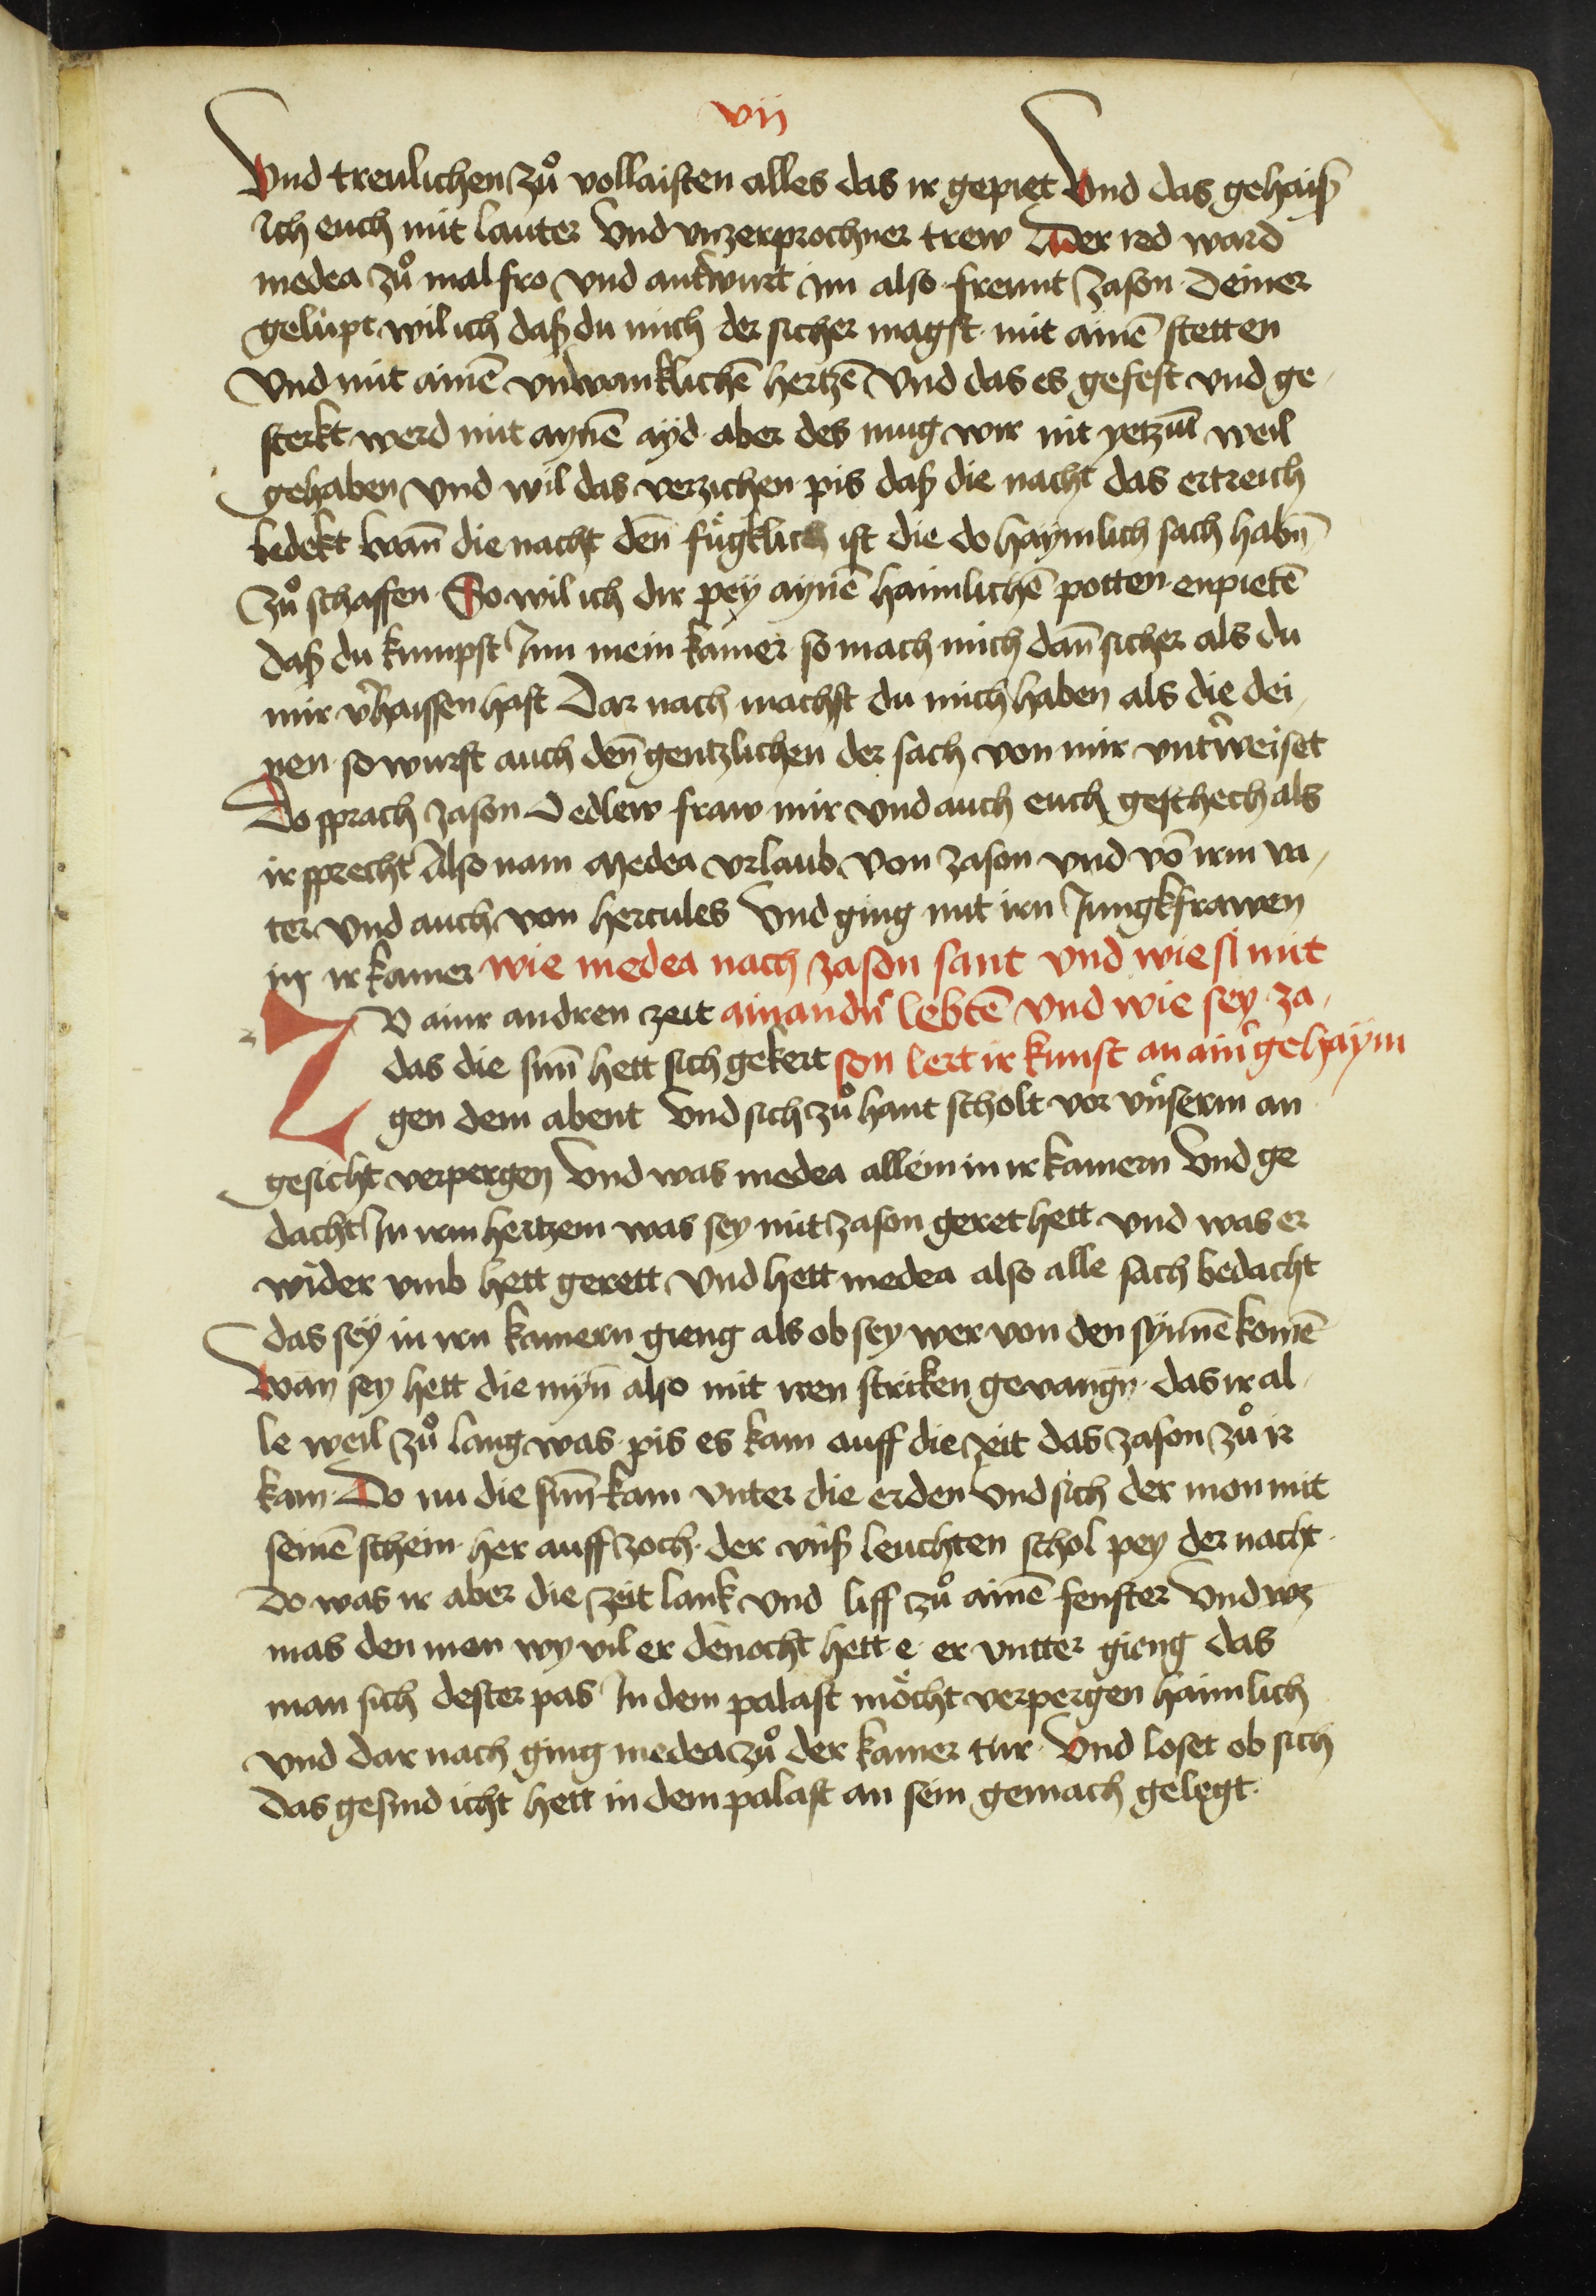 vij
Vnd treulichen zů vollaisten alles das ir gepiet Vnd das gehaiß
Ich euch mit lauter Vnd vnzerprochner trew Der red ward
medea zů mal fro vnd antwurt im also freunt Jason Deiner
gelüpt wil ich daß du mich der sicher magst mit ainē stetten
Vnd mit ainē vnwanklichē hertzē Vnd das es gefest vnd ge-
sterkt werd mit aynē ayd aber des mug wir nit yetzūt weil
gehaben Vnd wil das verzichen pis daß die nacht das ertreich
bedekt Wañ die nacht deñ fügklich ist die do haymlich sach habñ
zů schaffen So wil ich dir pey aynē haimlichē potten enpietē
daß du kumpst Inn mein kamer so mach mich dañ sicher als du
mir v̾haissen hast Dar nach machst du mich haben als die dei-
nen so wurst auch deñ gentzlichen der sach von mir vnt̾weiset
Do sprach Jason O edlew fraw mir vnd auch euch geschech als
ir sprecht Also nam Medea vrlaub von Jason vnd vō irm va-
ter Vnd auch von hercules Vnd ging mit irn Jungkfrawen
in ir kamer wie medea nach Jason sant vnd wie si mit
ZV ainr andren zeit ainand̾n lebtē vnd wie sey Ja-
das die suñ hett sich gekert son lert ir kunst an ain̾ gehaym
gen dem abent Vnd sich zů hant scholt vor vnserm an
gesicht verpergen Vnd was medea allein in ir kamern Vnd ge
dacht In irm hertzem was sey mit Jason geret hett vnd was er
wider vmb hett gerett Vnd hett medea also alle sach bedacht
das sey in irn kamern gieng als ob sey wer von den synnē komē
Wan sey hett die myñ also mit iren striken gevangñ das ir al-
le weil zů lang was pis es kam auff die zeit das Jason zů ir
kam Do nu die suñ kam vnter die erden Vnd sich der mon mit
seinē schein her auff zoch der vnß leuchten schol pey der nacht
Do was ir aber die zeit lank Vnd liff zů ainē fenster Vnd wz
mas den mon wy vil er dēnocht hett e er vntter gieng das
man sich dester pas In dem palast möcht verpergen haimlich
Vnd dar nach ging medea zů der kamer tür Vnd loset ob sich
das gesind icht hett in dem palast an sein gemach gelegt